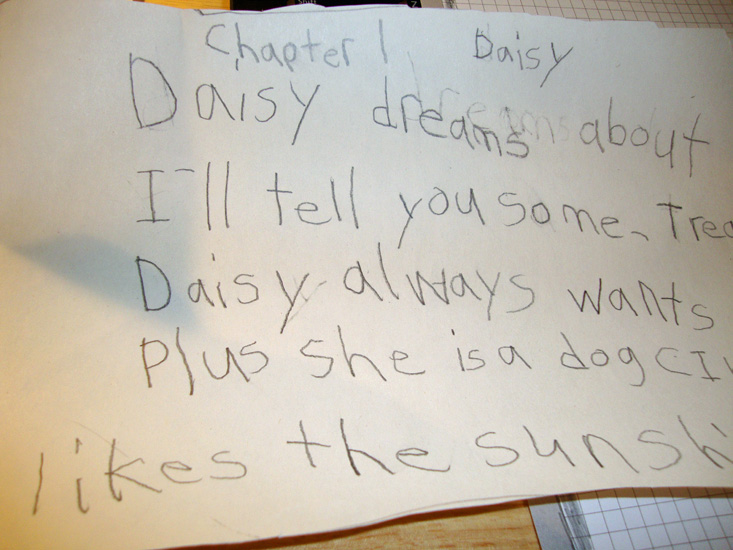 Chapter 1 Daisy
Daisy dreams about
I'll tell you some. Trea
Daisy always wants
Plus she is a dog
likes the sunshi